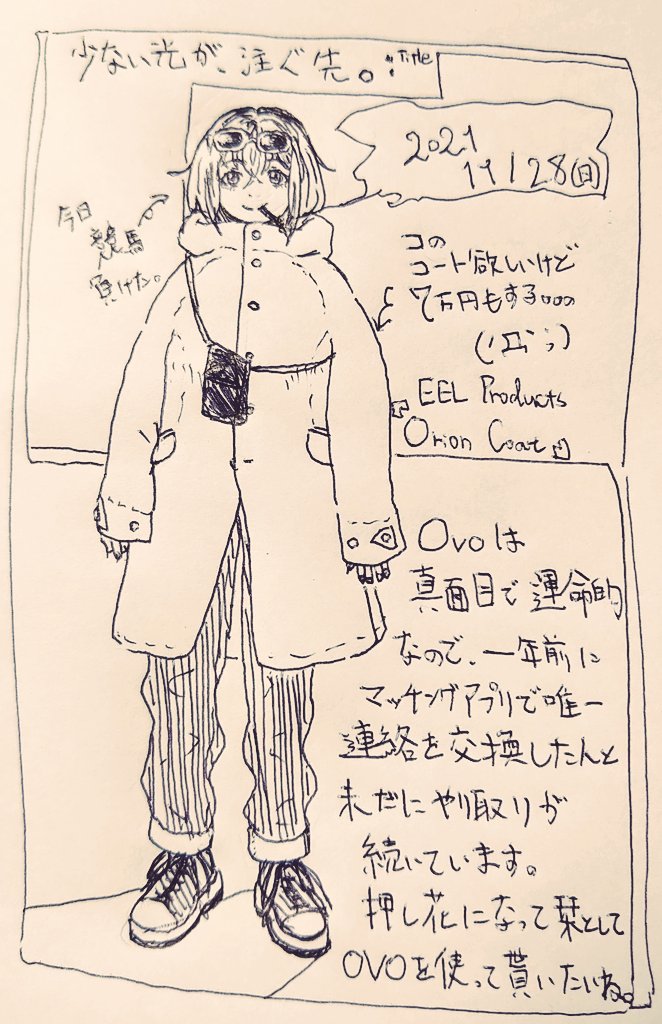 少ない光が、注ぐ先。:Title
2021
11/28(日)
今日
競馬
負けた。
コの
コート欲しいけど
7万円もする。。。
(;Д;)
EEL Products
Orion Coat
Ovoは
真面目で運命的
なので、一年前に
マッチングアプリで唯一
連絡を交換したんと
未だにやり取りが
続いています。
押し花になって栞として
OVOを使って貰いたいね。